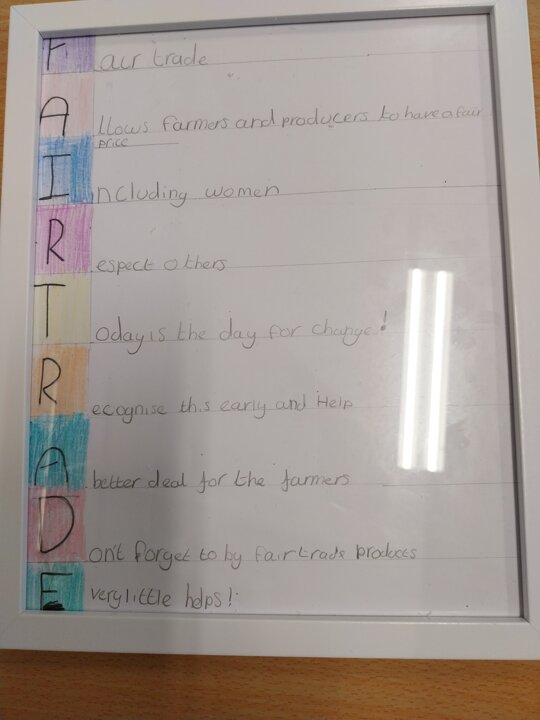 Fair trade
Allows farmers and producers to have a fair
price
Including women
Respect others
Today is the day for change!
Recognise this early and Help
A better deal for the farmers
Don't forget to by fairtrade products
Every little helps!